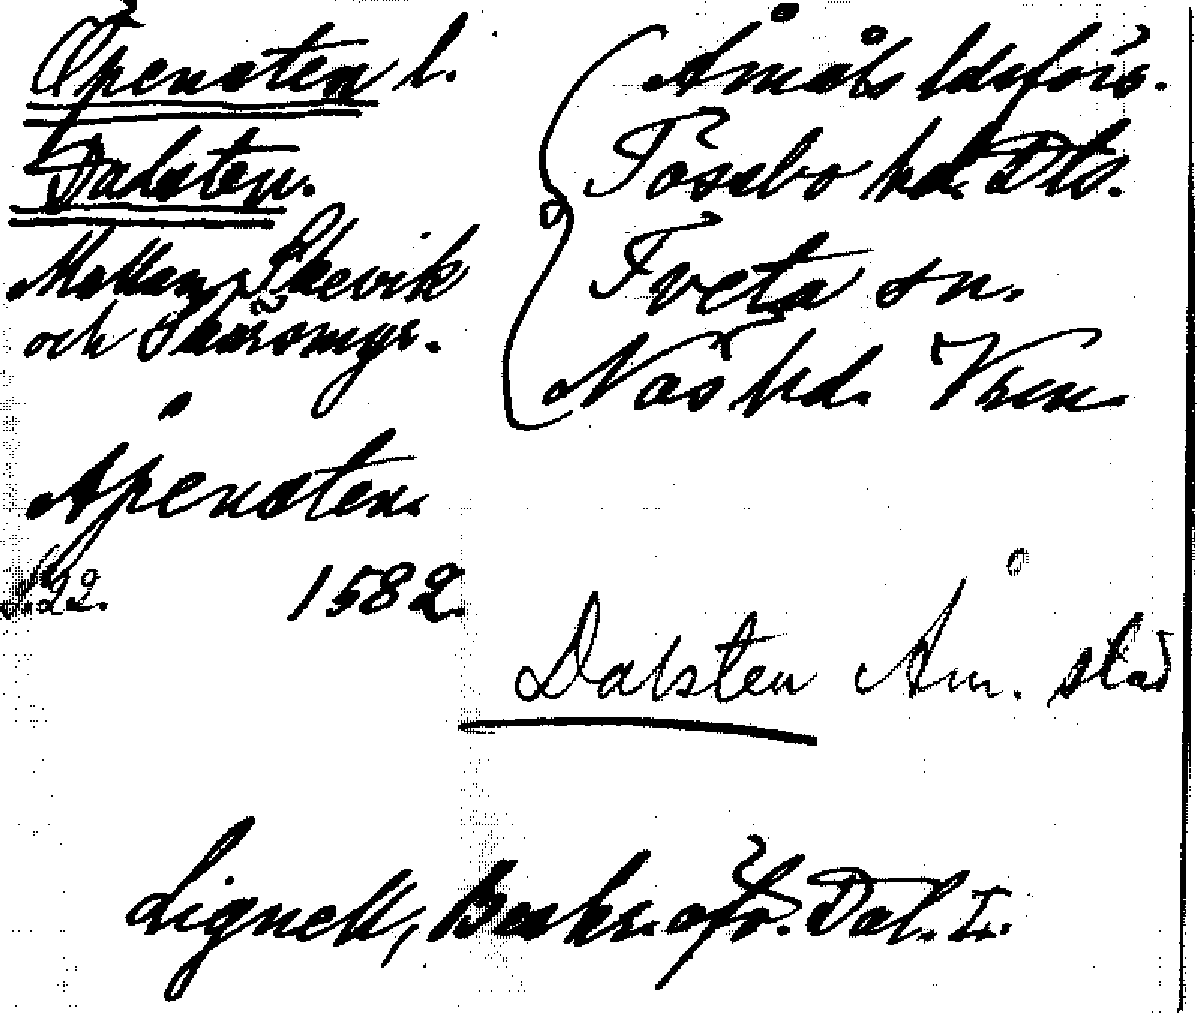 Öpensten l.
Dalsten.
Mellan Skevik
och Skäromyr.
Åmåls ldsförs.
Tössbo hd. Dls.
Tveta sn.
Näs hd. Vrm.
Åpensten.
s. 22. 1582.
Dalsten Åm. stad
Lignell, Beskr. öfv. Dal. I.